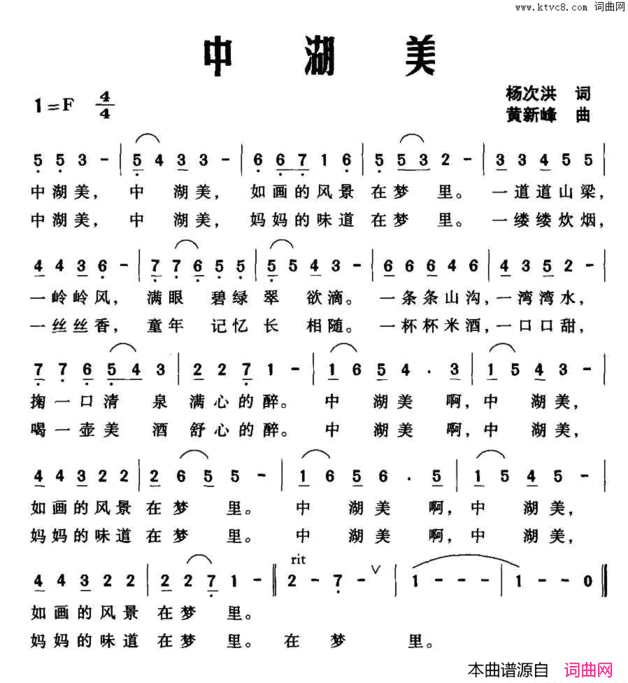 www.ktvc8.com 词曲网
中 湖 美
1=F 4/4
杨次洪 词
黄新峰 曲
5 5 3 - | 5 4 3 3 - | 6 6 7 1 6 | 5 5 3 2 - | 3 3 4 5 5 |
中湖美, 中 湖美, 如画的风景 在梦 里。 一道道山梁,
中湖美, 中 湖美, 妈妈的味道 在梦 里。 一缕缕炊烟,
4 4 3 6 - | 7 7 6 5 5 | 5 5 4 3 - | 6 6 6 4 6 | 4 3 5 2 - |
一岭岭风, 满眼 碧绿 翠 欲滴。 一条条山沟, 一湾湾水,
一丝丝香, 童年 记忆 长 相随。 一杯杯米酒, 一口口甜,
7 7 6 5 4 3 | 2 2 7 1 - | 1 6 5 4 . 3 | 1 5 4 3 - |
掬一口清 泉 满心的醉。 中 湖美 啊, 中 湖美,
喝一壶美 酒 舒心的醉。 中 湖美 啊, 中 湖美,
4 4 3 2 2 | 2 6 5 5 - | 1 6 5 6 . 5 | 1 5 4 5 - |
如画的风景 在梦 里。 中 湖美 啊, 中 湖美,
妈妈的味道 在梦 里。 中 湖美 啊, 中 湖美,
rit
4 4 3 2 2 | 2 2 7 1 - || 2 - 7 - ∨ | 1 - - - | 1 - - 0 ||
如画的风景 在梦 里。
妈妈的味道 在梦 里。 在 梦 里。
本曲谱源自 词曲网